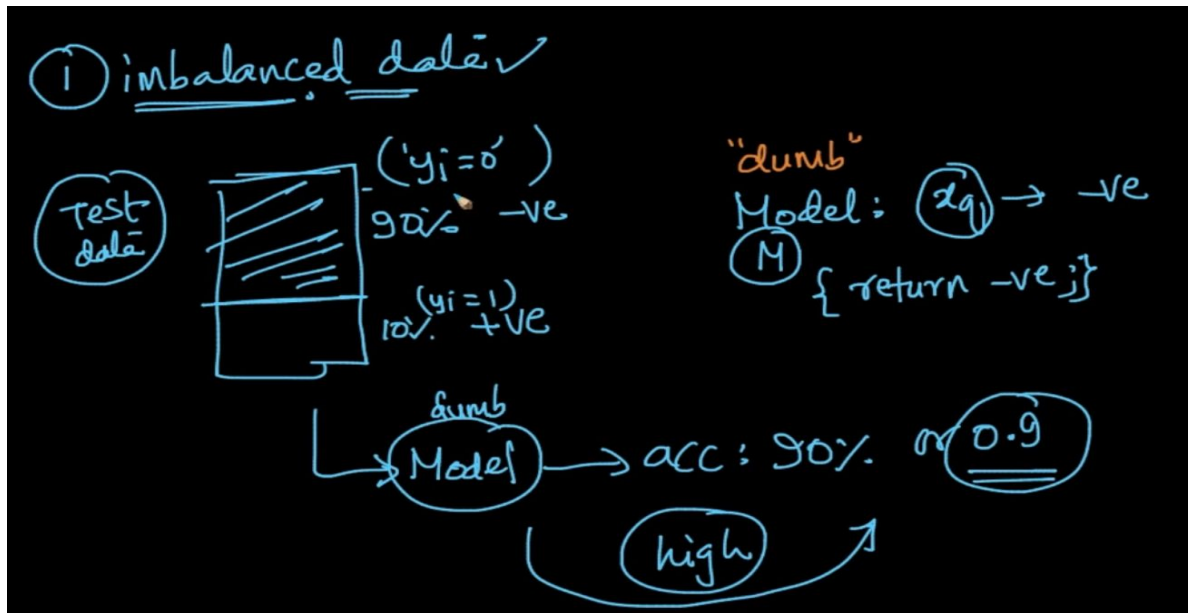 ① imbalanced data ✓
Test
data
('yi=0')
90% -ve
(yi=1)
10% +ve
"dumb"
Model: xq → -ve
M
{ return -ve; }
dumb
Model → acc: 90% or 0.9
high